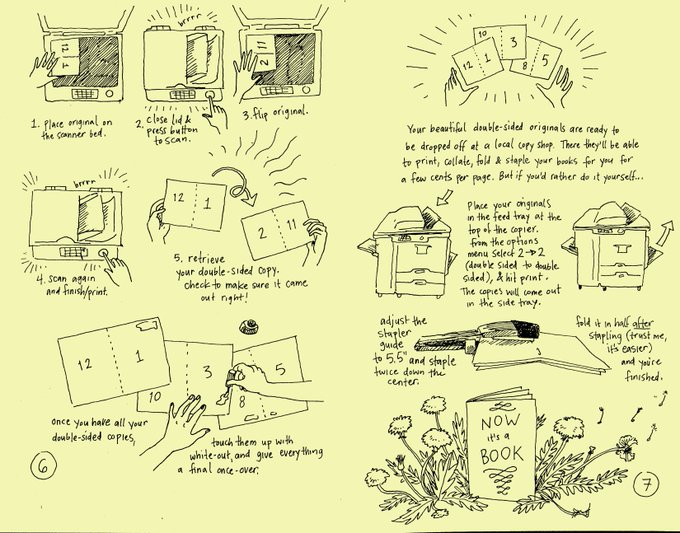 brrrr
12
7
2 11
1. place original on
the scanner bed.
2. close lid &
press button
to scan.
3. flip original.
brrrr
4. scan again
and finish/print.
12 1
2 11
5. retrieve
your double-sided copy.
check to make sure it came
out right!
12 1
10 3
8 5
once you have all your
double-sided copies,
touch them up with
white-out, and give everything
a final once-over.
6
10 3
12 1
8 5
Your beautiful double-sided originals are ready to
be dropped off at a local copy shop. There they'll be able
to print, collate, fold & staple your books for you for
a few cents per page. But if you'd rather do it yourself...
Place your originals
in the feed tray at the
top of the copier.
From the options
menu select 2→2
(double sided to double
sided), & hit print.
The copies will come out
in the side tray.
adjust the
stapler
guide
to 5.5" and staple
twice down the
center.
fold it in half after
stapling (trust me,
it's easier)
and you're
finished.
NOW
it's a
BOOK
7